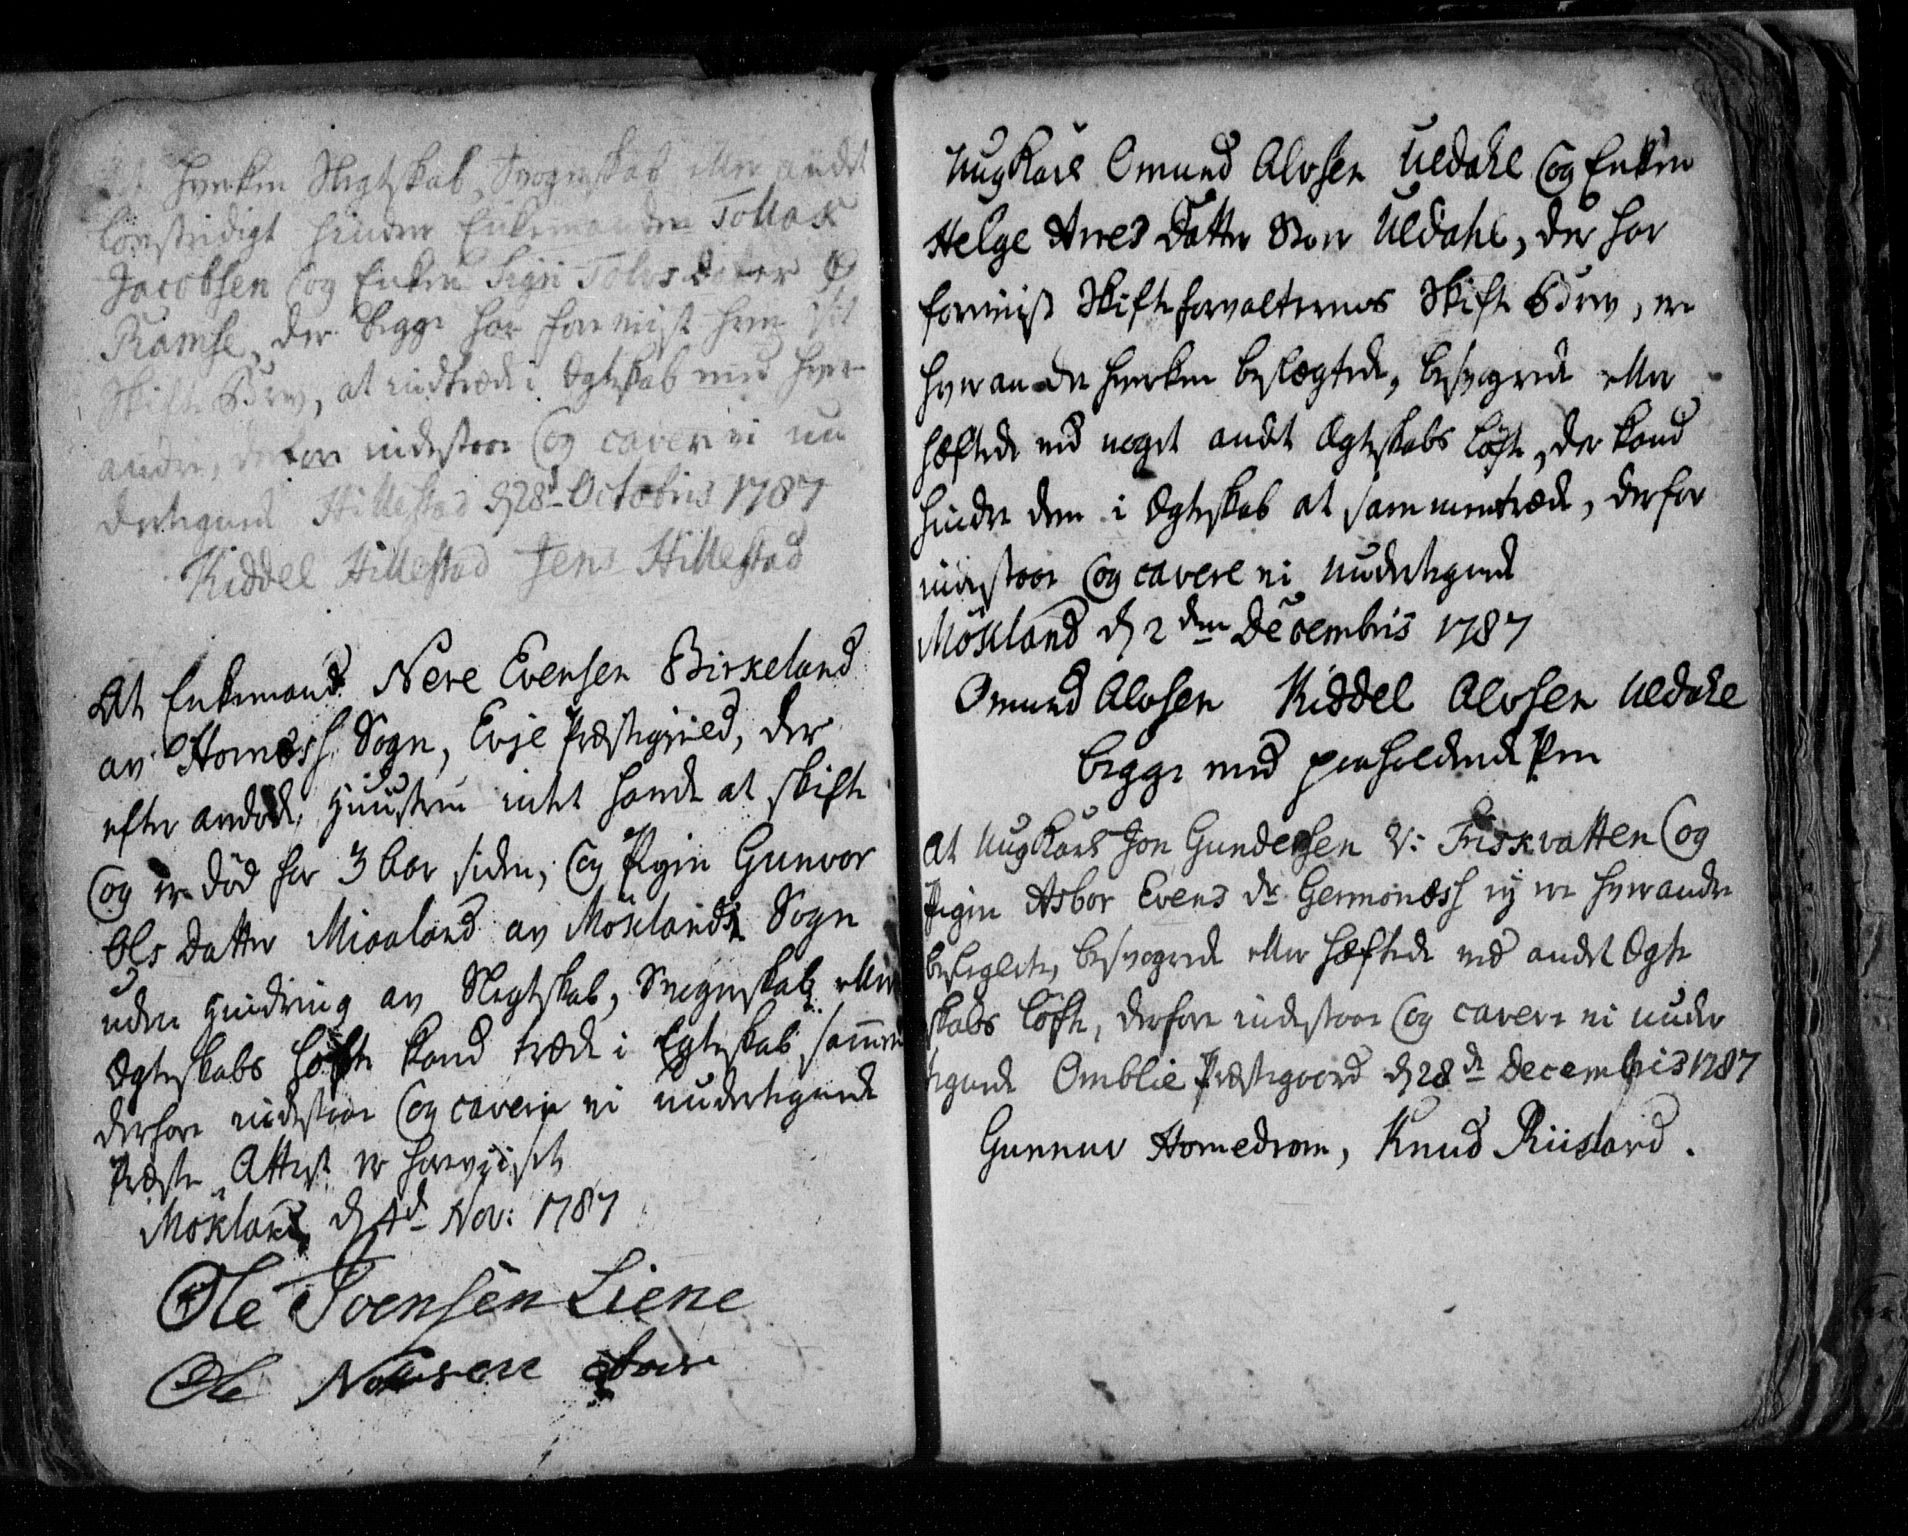 At hverken Slegtskab, Svogerskab eller andet
lovstridigt hindrer Enkemanden Tollak
Jacobsen og Enken Sigri Tolvs Datter
Ramse, der begge har foreviist
Skifte Brev, at indtræde i Ægteskab med hver
andre, derfore indestaar og cavere vi un
dertegnede Hillestad d 28d Octobris 1787
Kiddel Hillestad Jens Hillestad
At Enkemand Nere Evensen Birkeland
av Hornæss Sogn, Evje Præstegield, der
efter andøde Huustrue intet havde at skifte
og er død for 3 Aar siden, og Pigen Gunvor
Ols Datter Miaaland av Möklands Sogn
uden Hindring av Slegtskab, Svogerskab eller
Ægteskabs Løfte kand træde i Egteskab sammen
derfore indestaar og cavere vi undertegnede
Præste Attest er foreviiset
Mökland d 4d Nov: 1787
Ole Svensen Liene
Ole
Ungkarl Omund Alvsen Uldahl og Enken
Helge Arres Datter Uldahl, der har
foreviist Skifteforvalternes Skifte Brev, ere
hverandre hverken beslægtede, besvogrede eller
hæftede ved noget andet Ægteskabs Løfte, der kand
hindre dem i Ægteskab at sammentræde, derfor
indestaar og cavere vi undertegnede
Mökland d 2den Decembris 1787
Omund Alvsen Kiddel Alvsen Uldahl
begge med paaholdende Pen
At Ungkarl Jon Gundersen V: Friskvatten og
Pigen Asbor Evens Dr Germonæss ej ere hverandre
beslegtede, besvogrede eller hæftede ved andet Ægte
skabs Løfte, derfore indestaar og cavere vi under
tegnede Omblie Præstegaard d 28de Decembris 1787
Gunnuv Homedrom, Knud Riisland.